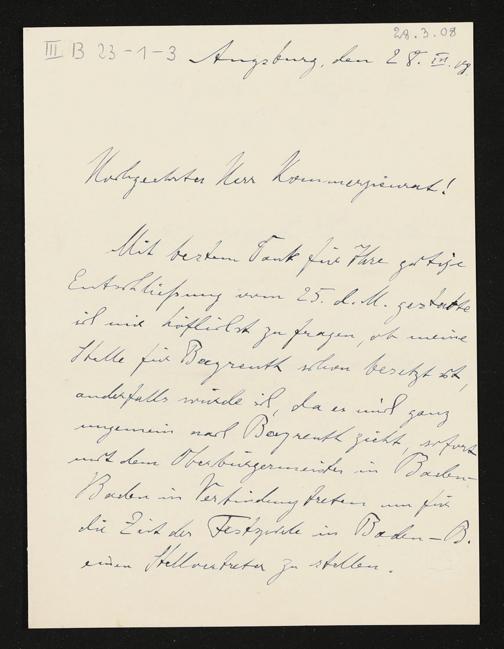 28.3.08
III B 23-1-3 Augsburg, den 28. III.
Hochgeehrter Herr Kommerzienrat!
Mit bestem Dank für Ihre gütige
Entschließung vom 25. d. M. gestatte
ich mir höflichst zu fragen, ob meine
Stelle für Bayreuth schon besetzt ist,
anderfalls würde ich, da es mich ganz
ungemein nach Bayreuth zieht, sofort
mit dem Oberbürgermeister in Baden-
Baden in Verbindung treten um für
die Zeit der Festspiele in Baden-B.
einen Stellvertreter zu stellen.